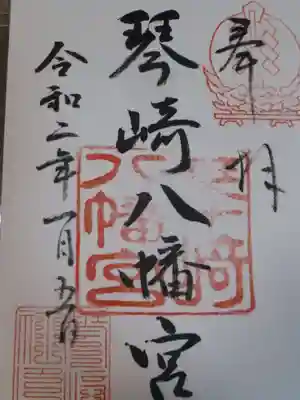 奉拝
琴崎八幡宮
令和二年一月五日
琴崎八幡宮